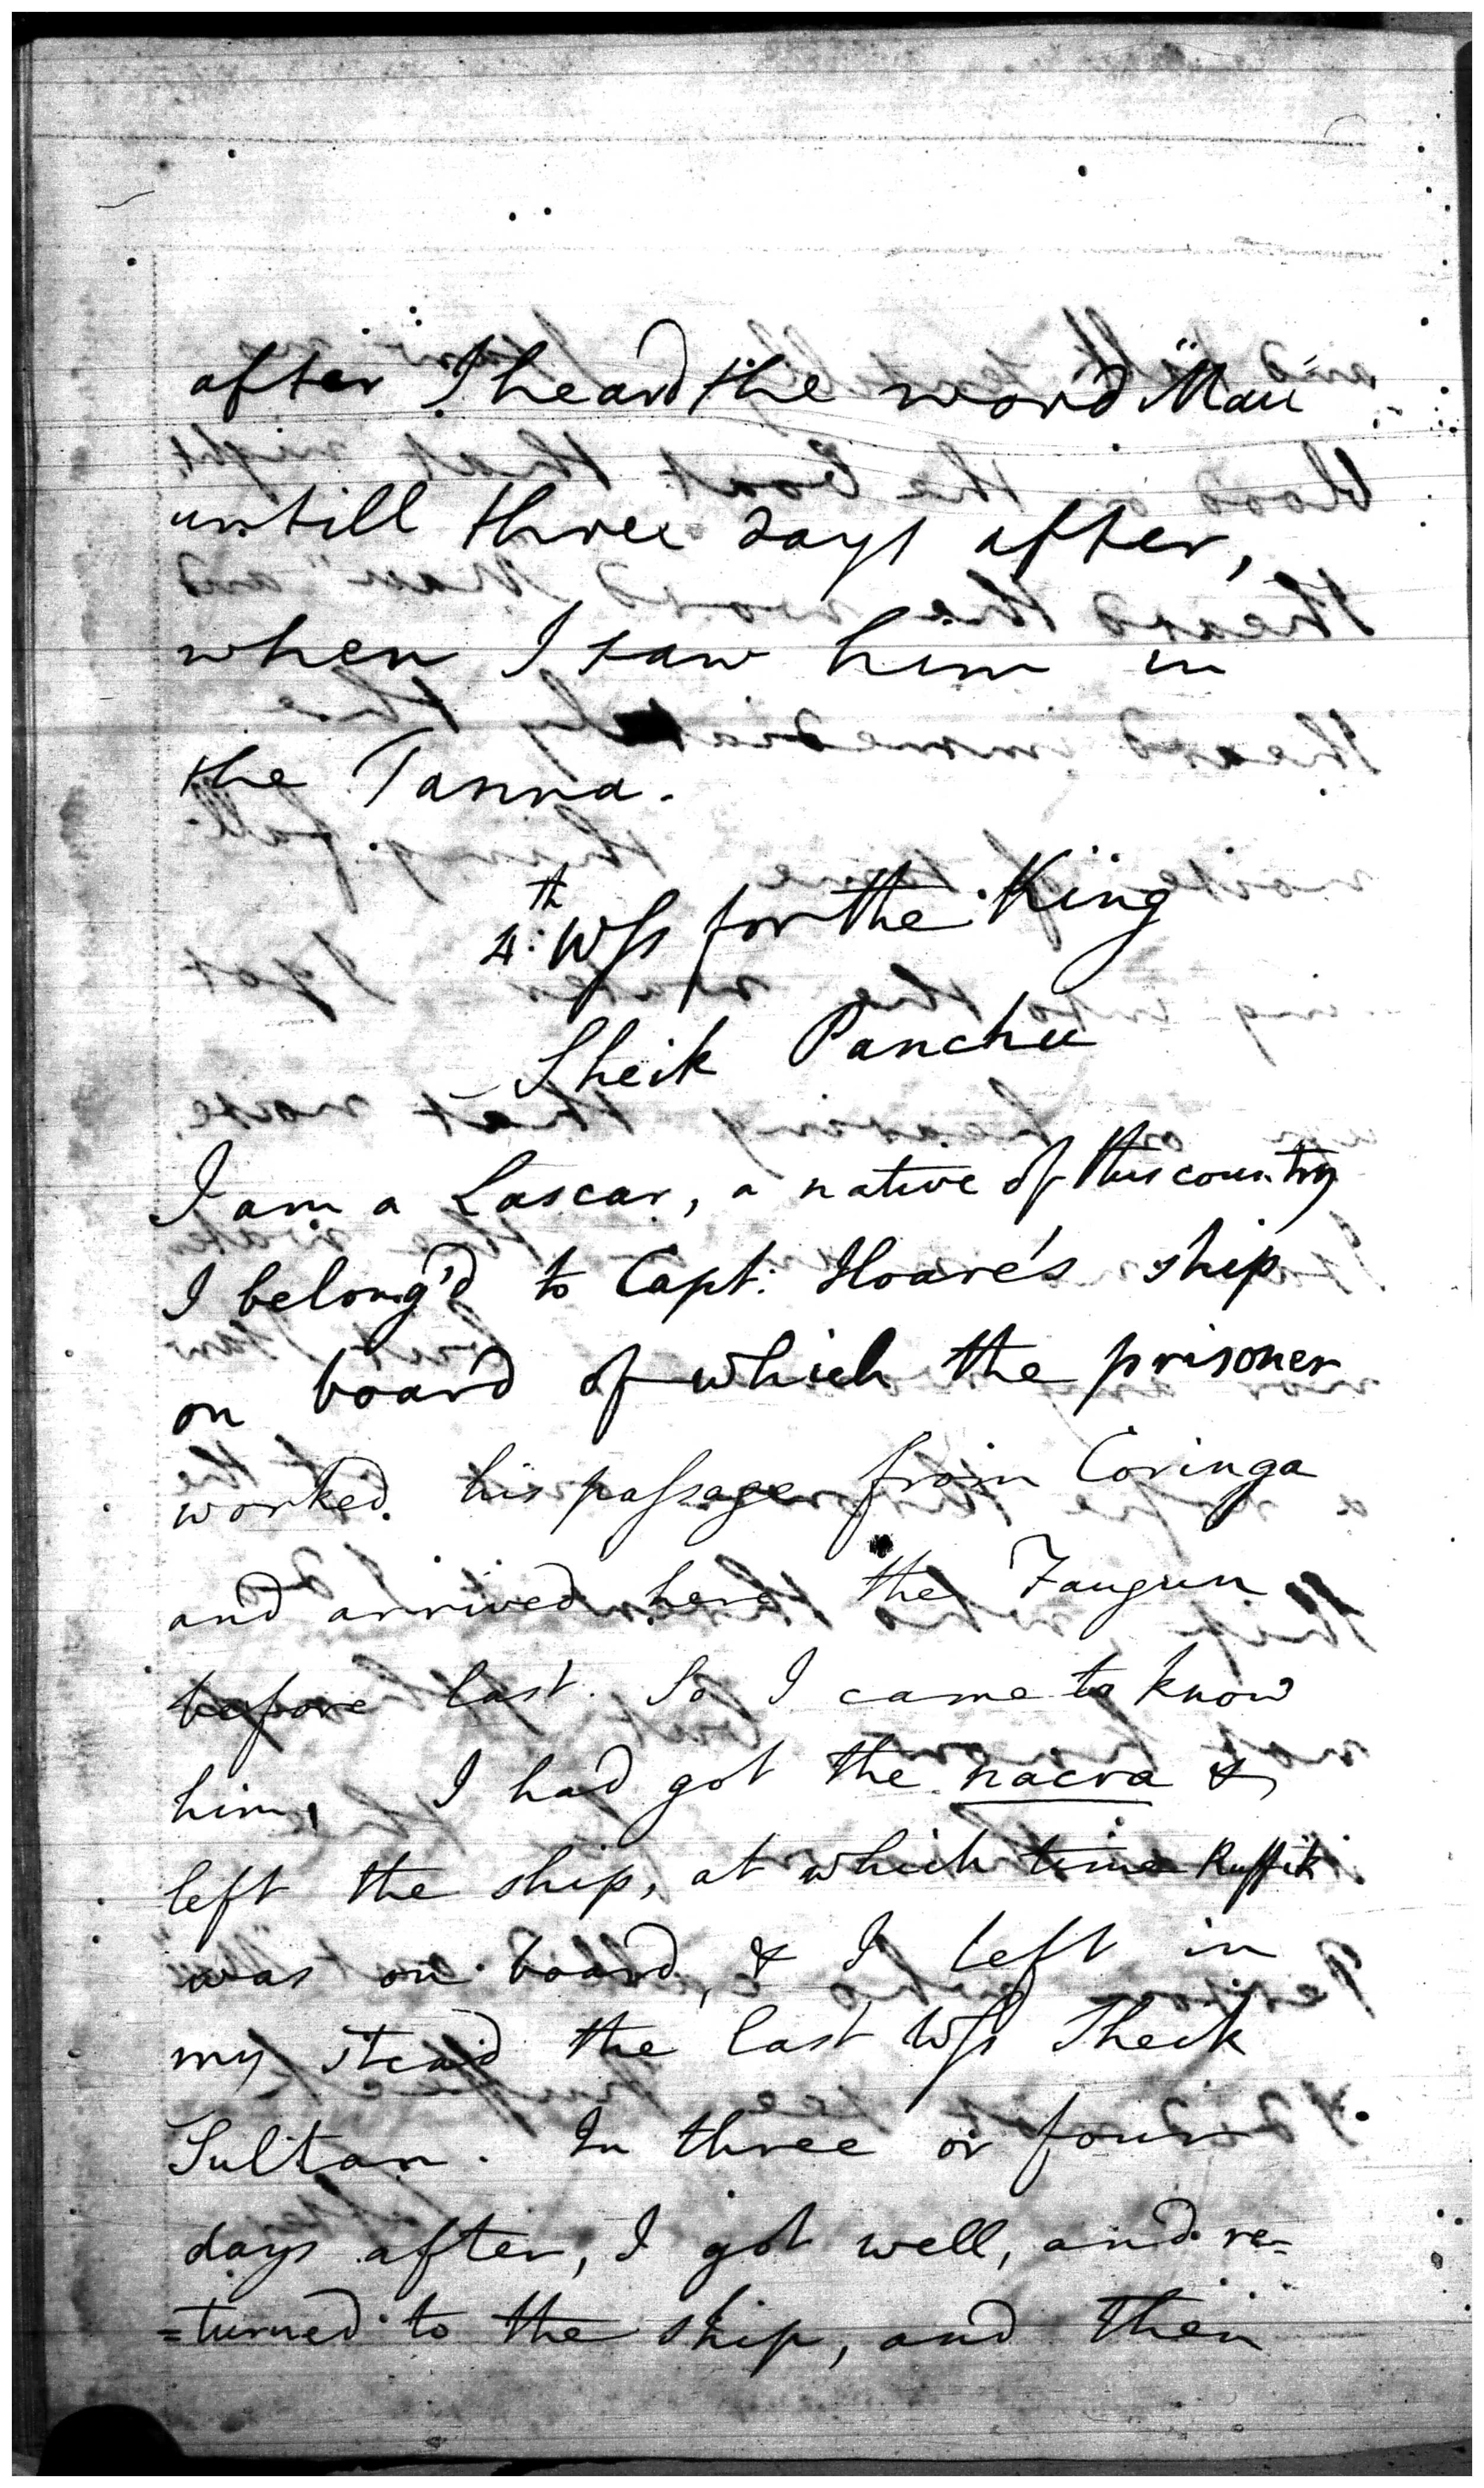 after I heard the word "Mau"
untill three days after,
when I saw him in
the Tanna.
4:th Wss for the King
Sheik Panchu
I am a Lascar, a native of this country
I belong'd to Capt: Hoare's ship
on board of which the prisoner
worked his passage from Coringa
and arrived here the Faugun
before last. So I came to know
him, I had got the nacra &
left the ship, at which time Ruffik
was on board, & I left in
my stead the last Wss Sheik
Sultan. In three or four
days after, I got well, and re=
=turned to the ship, and then